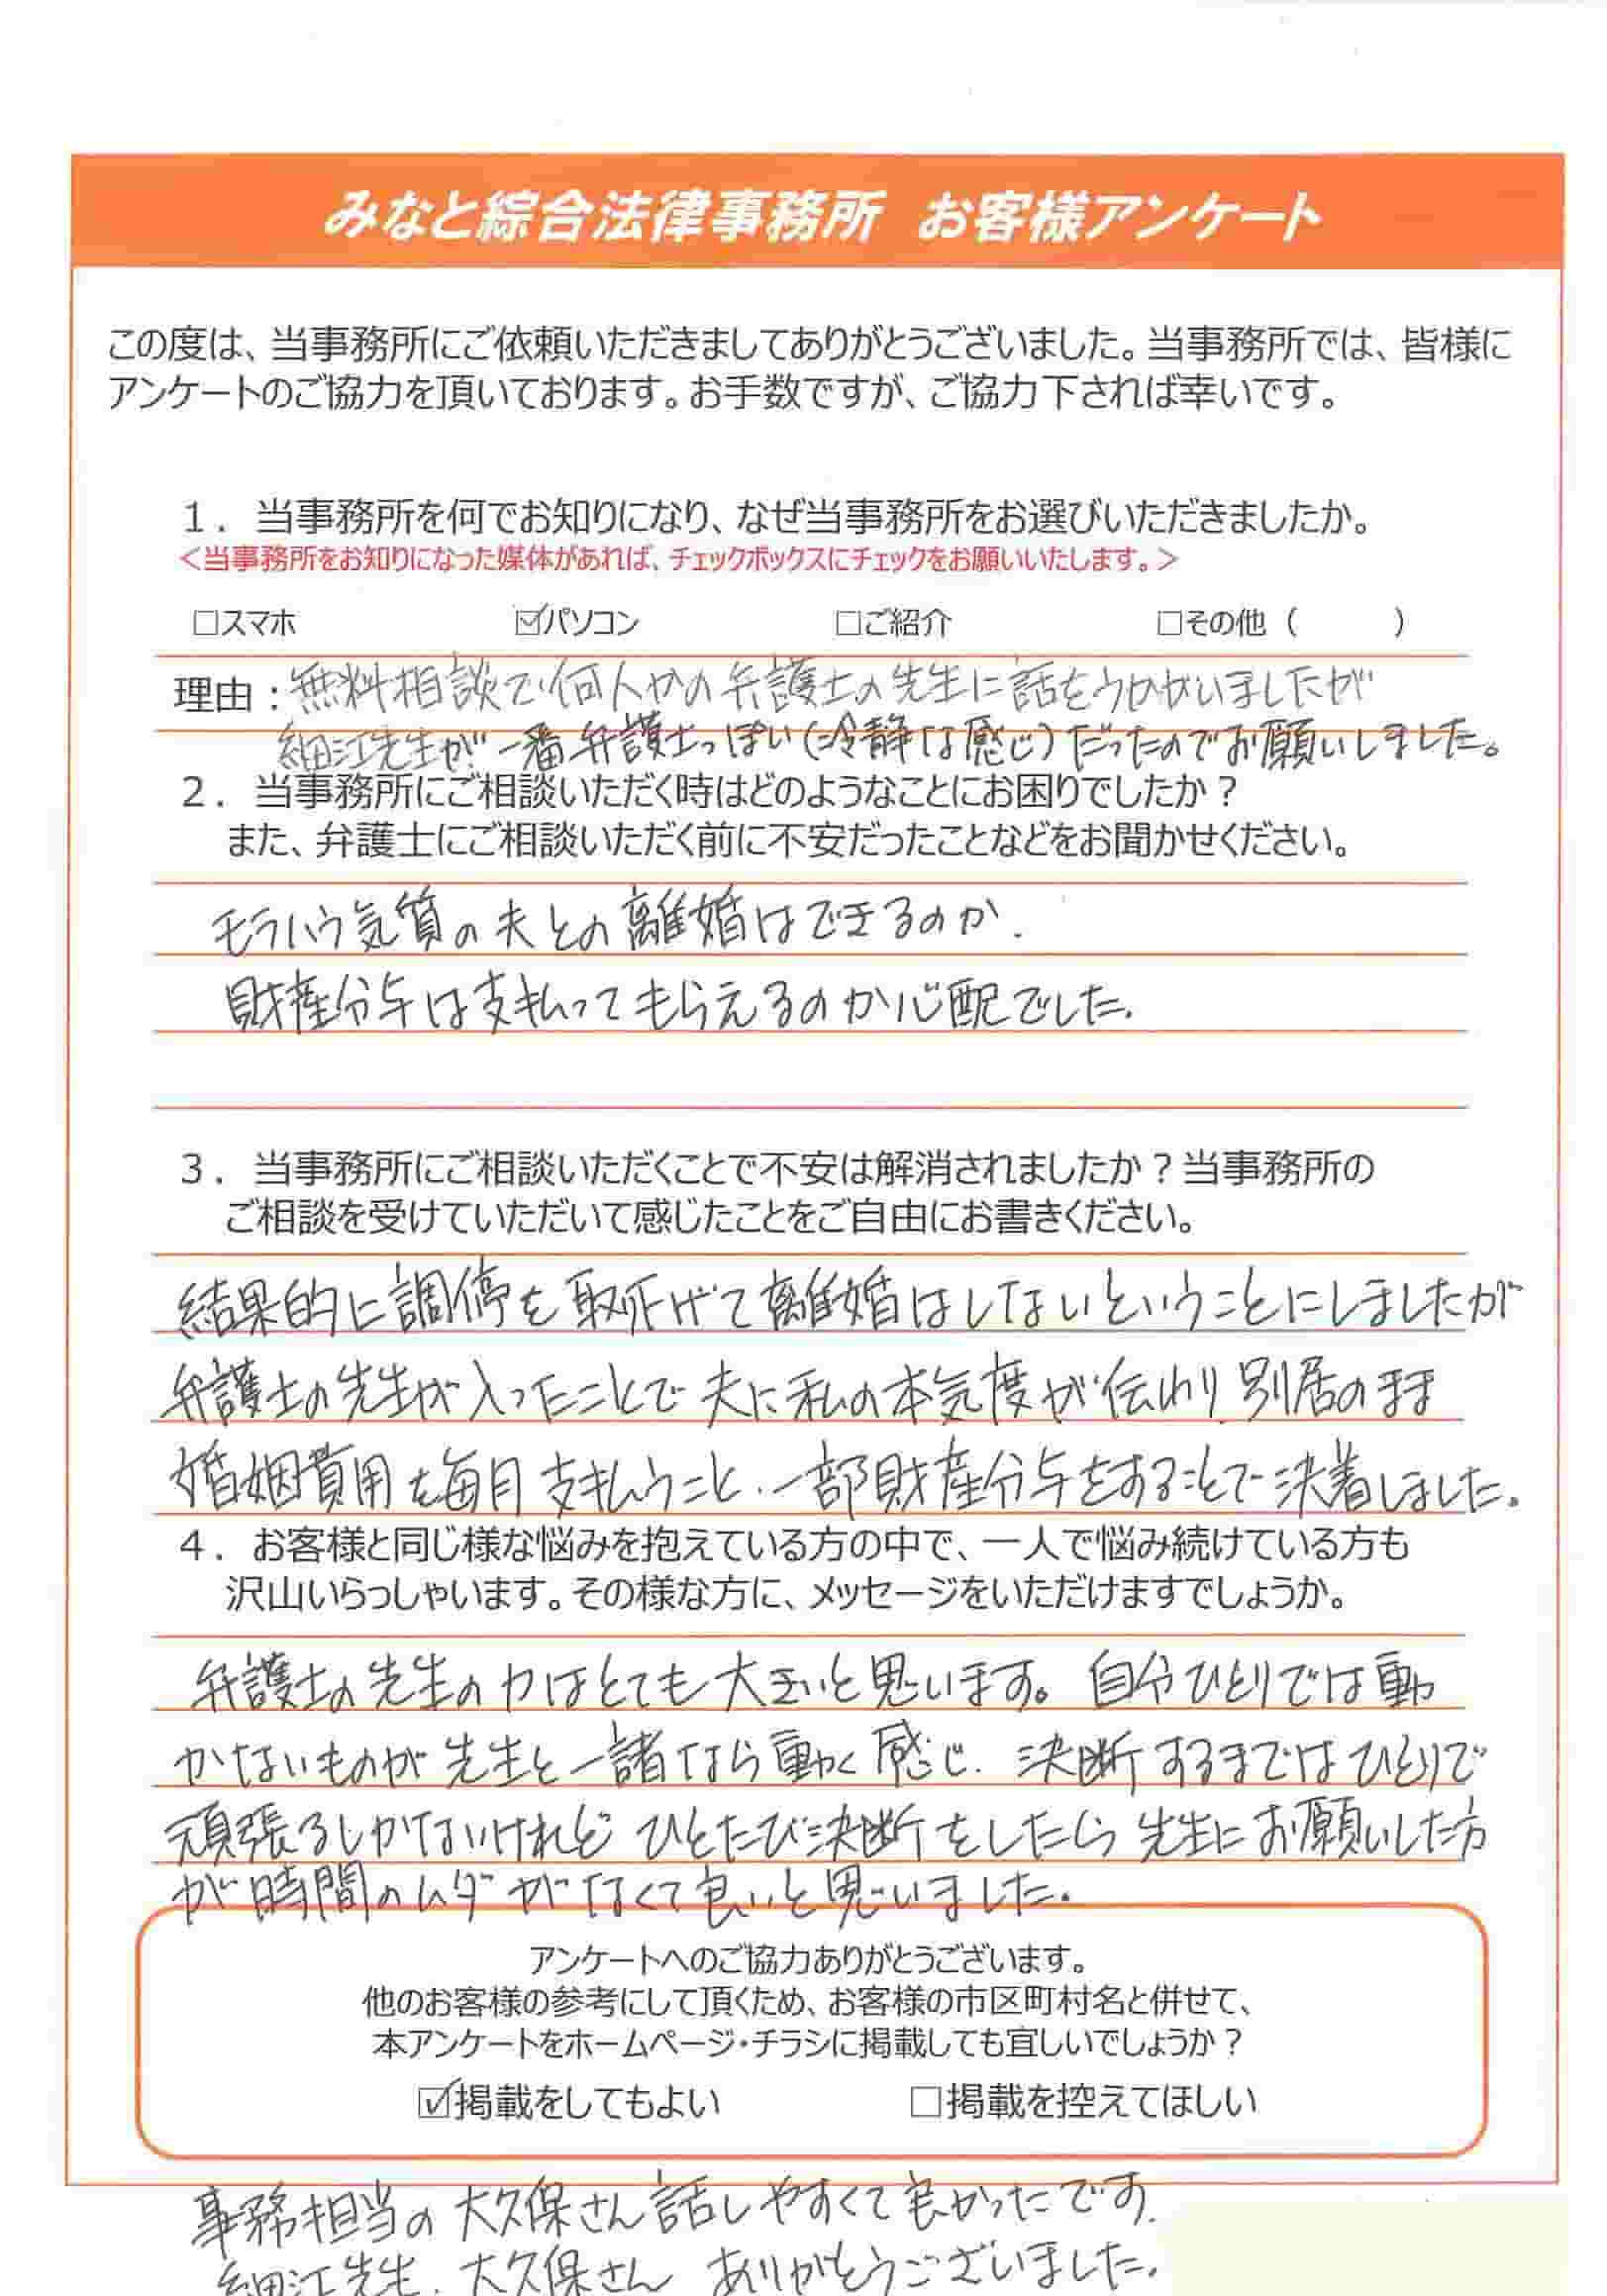 みなと綜合法律事務所 お客様アンケート
この度は、当事務所にご依頼いただきましてありがとうございました。当事務所では、皆様に
アンケートのご協力を頂いております。お手数ですが、ご協力下されば幸いです。
１．当事務所を何でお知りになり、なぜ当事務所をお選びいただきましたか。
＜当事務所をお知りになった媒体があれば、チェックボックスにチェックをお願いいたします。＞
□スマホ ☑パソコン □ご紹介 □その他（ ）
理由：無料相談で何人かの弁護士の先生に話をうかがいましたが
細江先生が一番弁護士っぽい(冷静な感じ)だったのでお願いしました。
２．当事務所にご相談いただく時はどのようなことにお困りでしたか？
また、弁護士にご相談いただく前に不安だったことなどをお聞かせください。
モラハラ気質の夫との離婚はできるのか.
財産分与は支払ってもらえるのか心配でした.
３．当事務所にご相談いただくことで不安は解消されましたか？当事務所の
ご相談を受けていただいて感じたことをご自由にお書きください。
結果的に調停を取下げて離婚はしないということにしましたが
弁護士の先生が入ったことで夫に私の本気度が伝わり、別居のまま
婚姻費用を毎月支払うこと、一部財産分与をすることで決着しました。
４．お客様と同じ様な悩みを抱えている方の中で、一人で悩み続けている方も
沢山いらっしゃいます。その様な方に、メッセージをいただけますでしょうか。
弁護士の先生の力はとても大きいと思います。自分ひとりでは動
かないものが先生と一諸なら動く感じ. 決断するまではひとりで
頑張るしかないけれど ひとたび決断をしたら先生にお願いした方
が時間のムダがなくて良いと思いました.
アンケートへのご協力ありがとうございます。
他のお客様の参考にして頂くため、お客様の市区町村名と併せて、
本アンケートをホームページ・チラシに掲載しても宜しいでしょうか？
☑掲載をしてもよい □掲載を控えてほしい
事務担当の大久保さん話しやすくて良かったです.
細江先生、大久保さん ありがとうございました.